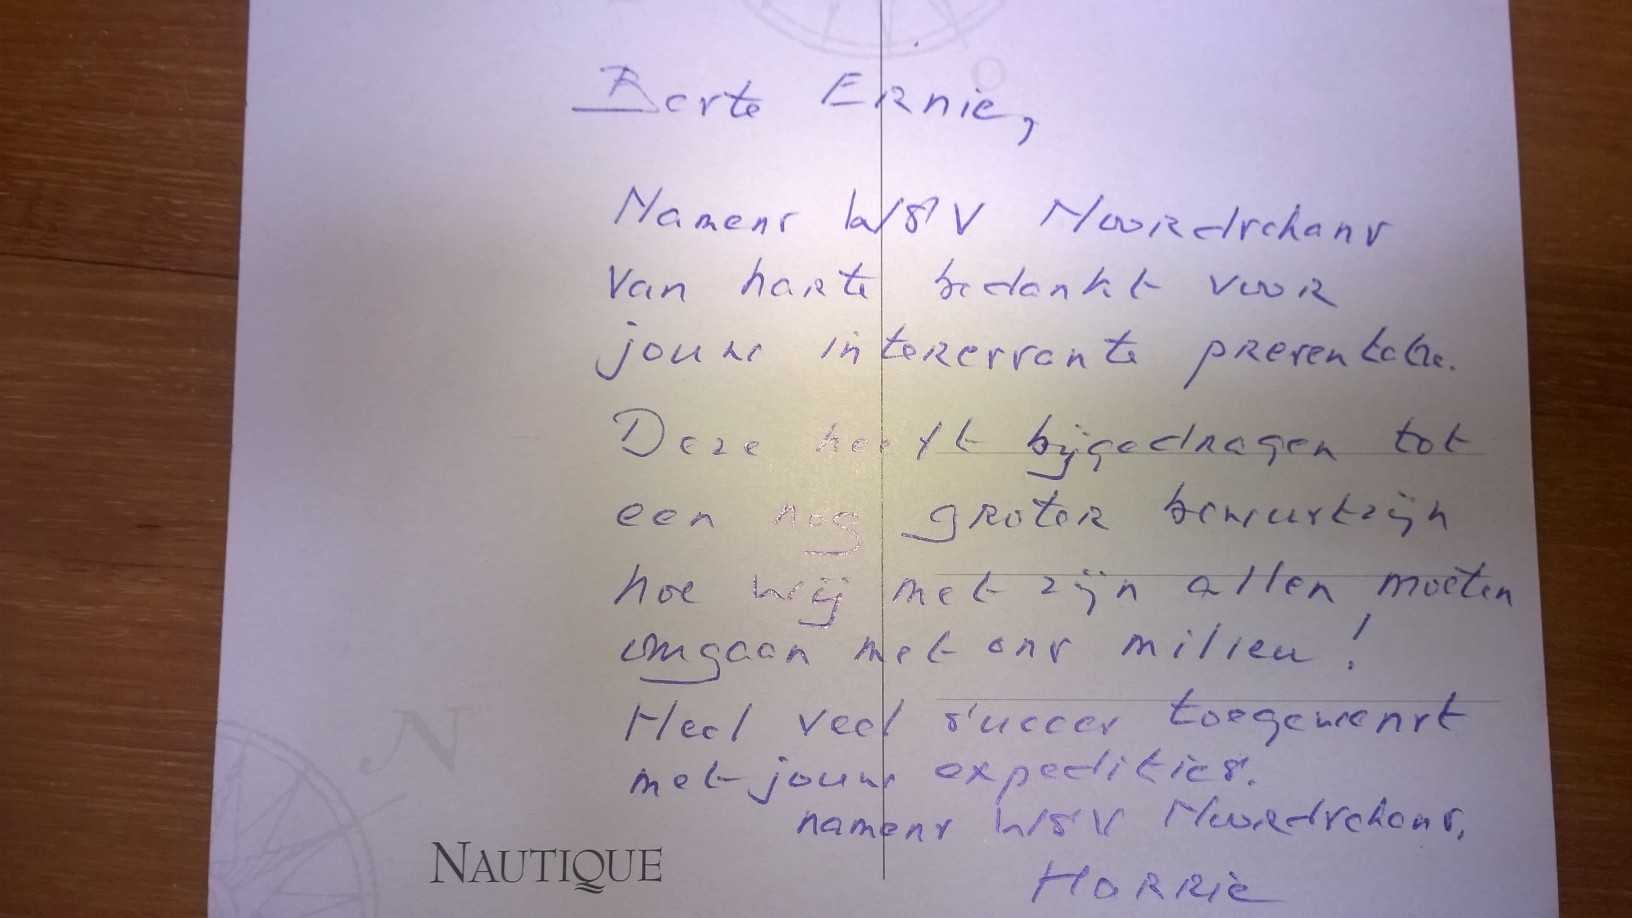 Beste Ernie,
Namens WSV Noordschans
van harte bedankt voor
jouw interessante presentatie.
Deze heeft bijgedragen tot
een nog groter bewustzijn
hoe wij met zijn allen moeten
omgaan met ons milieu!
Heel veel succes toegewenst
met jouw expedities.
namens WSV Noordschans,
Harrie
N
NAUTIQUE